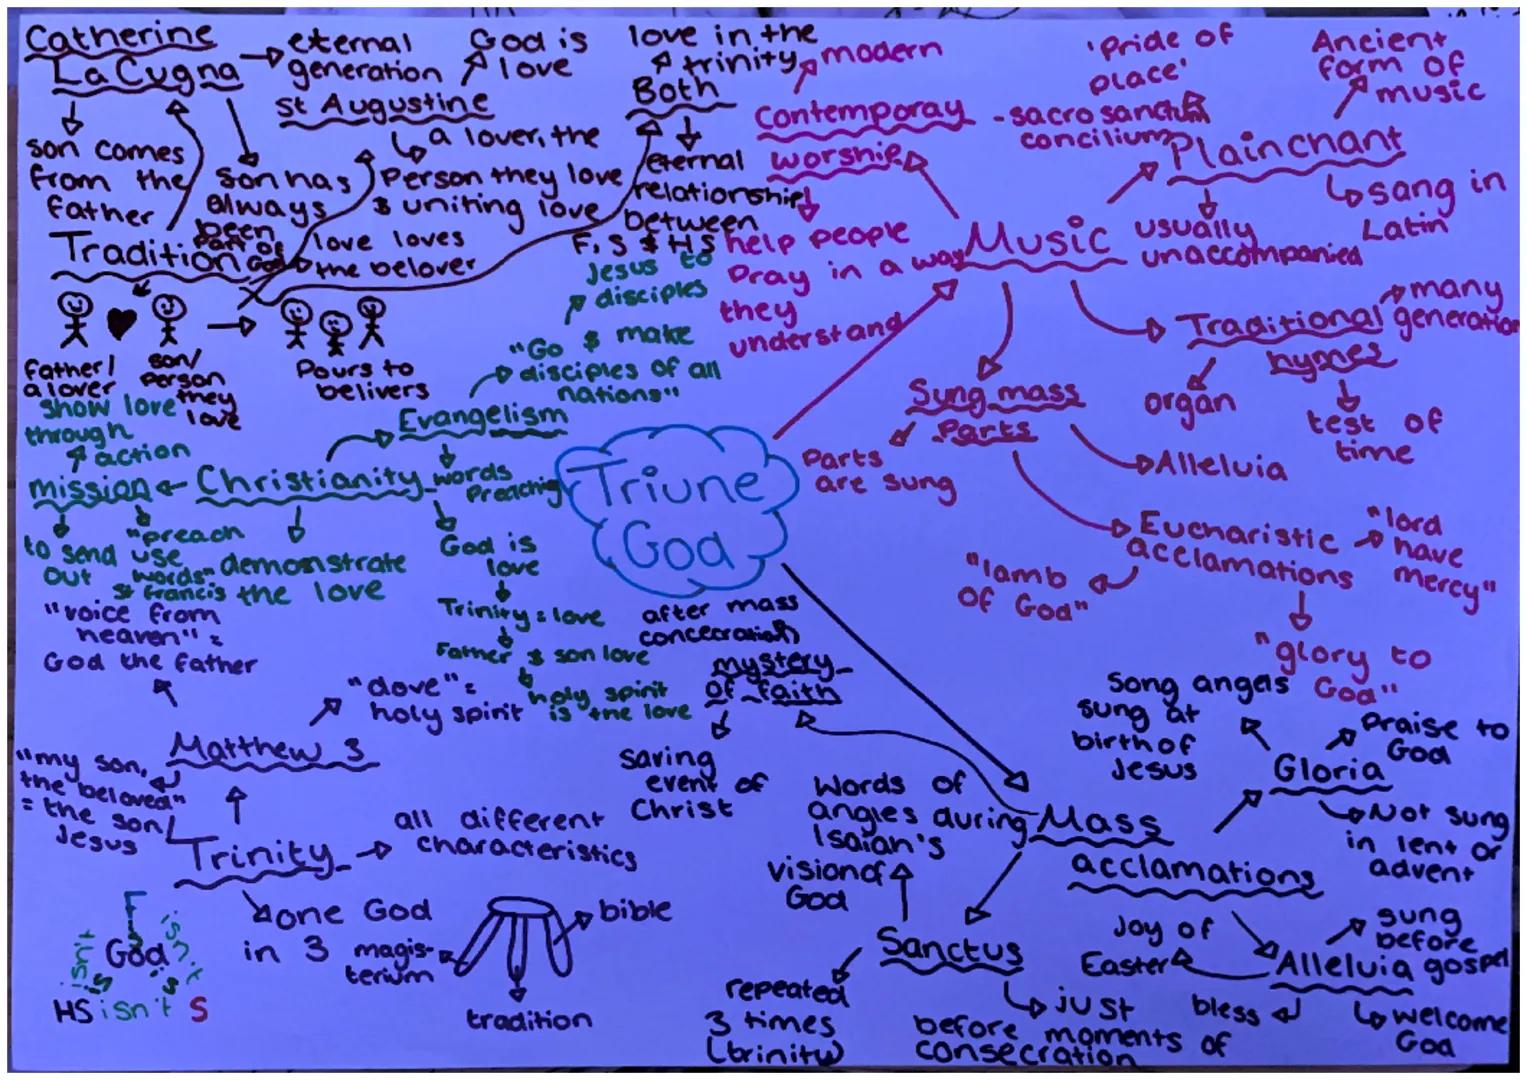 Catherine
La Cugna
eternal
generation
God is
love
St Augustine
love in the
trinity
Both
son comes
from the
father
son has
always
been
part of
God
a lover, the
Person they love
& uniting love
love loves
the belover
eternal
relationship
between
F, S & HS
Tradition
father/
a lover
son/
person
they
love
Pours to
belivers
Contemporay
worship
modern
help people
Pray in a way
they
understand
Music
'pride of
place'
-sacrosanctum
concilium
Plainchant
Ancient
form of
music
sang in
Latin
usually
unaccompanied
Traditional
hymes
many
generation
organ
test of
time
Sung mass
Parts
Parts
are sung
Alleluia
Eucharistic
acclamations
"lord
have
mercy"
"lamb
of God"
"glory to
God"
Triune
God
Christianity
Evangelism
"Go & make
disciples of all
nations"
Jesus to
disciples
words
Preaching
God is
love
Trinity = love
Father & son love
holy spirit
is the love
mission
show love
through
action
to send
out
"preach
use
words"
St francis
demonstrate
the love
Trinity
Matthew 3
"voice from
heaven" =
God the father
"dove" =
holy spirit
"my son,
the beloved"
= the son/
Jesus
all different
characteristics
one God
in 3
magis-
terium
bible
tradition
F
isn't
isn't
is
is
is
God
HS isn't S
Mass
acclamations
mystery
of faith
after mass
saving
event of
Christ
Gloria
Song angels
sung at
birth of
Jesus
Praise to
God
Not sung
in lent or
advent
Sanctus
Words of
angles during
Isaiah's
vision of
God
repeated
3 times
(trinity)
just
before moments of
consecration
Alleluia
Joy of
Easter
sung
before
gospel
bless
welcome
God